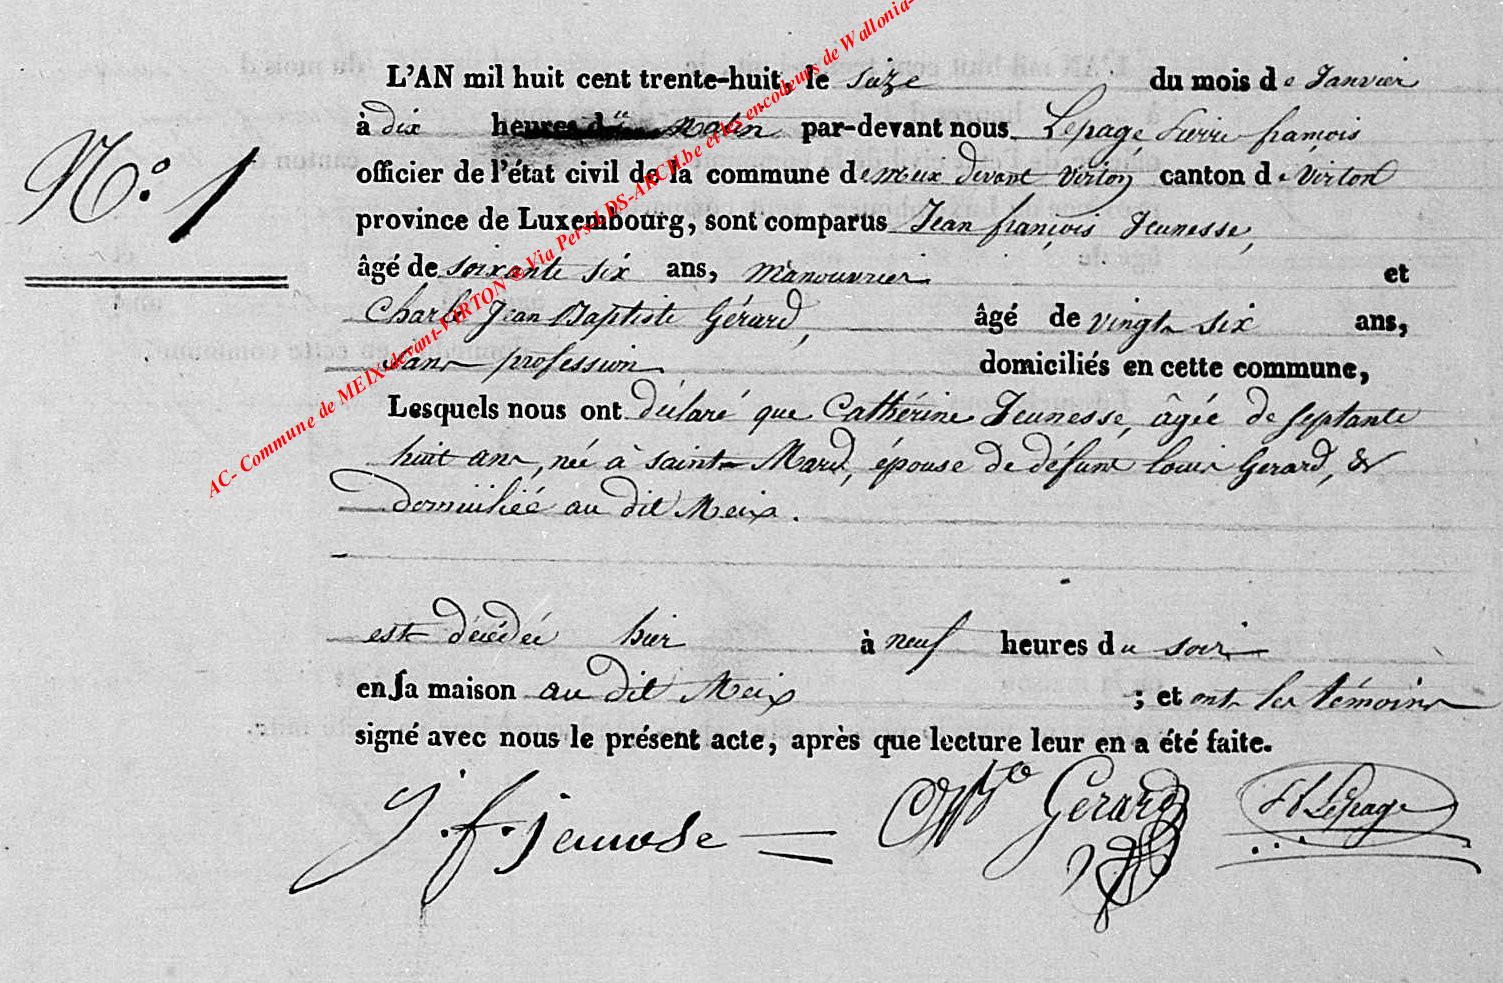 L'AN mil huit cent trente-huit, le seize du mois de Janvier
N.° 1
à dix heures du Matin par-devant nous Lepage Pierre françois
officier de l'état civil de la commune de meix devant Virton canton de Virton
province de Luxembourg, sont comparus Jean françois Jeunesse,
âgé de soixante six ans, manouvrier et
Charle Jean Baptiste Gérard, âgé de vingt six ans,
sans profession domiciliés en cette commune,
Lesquels nous ont déclaré que Cathérine Jeunesse, âgée de septante
huit ans, née à saint Mard, épouse de défunt louis Gerard, &
domiciliée au dit Meix.
est décédée hier à neuf heures du soir
en sa maison au dit Meix ; et ont les témoins
signé avec nous le présent acte, après que lecture leur en a été faite.
j. f. jeunesse Gerard Lepage
AC- Commune de MEIX-devant-VIRTON © Via Perso LDS-ARCH.be et les encodeurs de Wallonia-